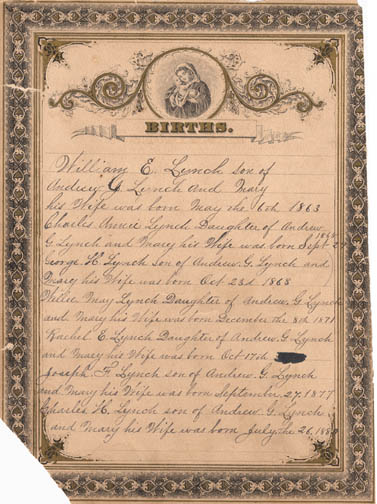 BIRTHS.
William E. Lynch son of
Andrew G Lynch and Mary
his Wife was born May the 6th 1863
Charles Annie Lynch Daughter of Andrew
G Lynch and Mary his Wife was born Sept
George H. Lynch son of Andrew. G. Lynch and
Mary his Wife was born Oct 23d 1868
May Lynch Daughter of Andrew. G Lynch
and Mary his Wife was born December the 8th 1871
Rachel E. Lynch Daughter of Andrew. G. Lynch
and Mary his Wife was born Oct 17th
Joseph F. Lynch son of Andrew. G. Lynch
and Mary his Wife was born September. 27. 1877
Charles H. Lynch son of Andrew. G Lynch
and Mary his Wife was born July the 26